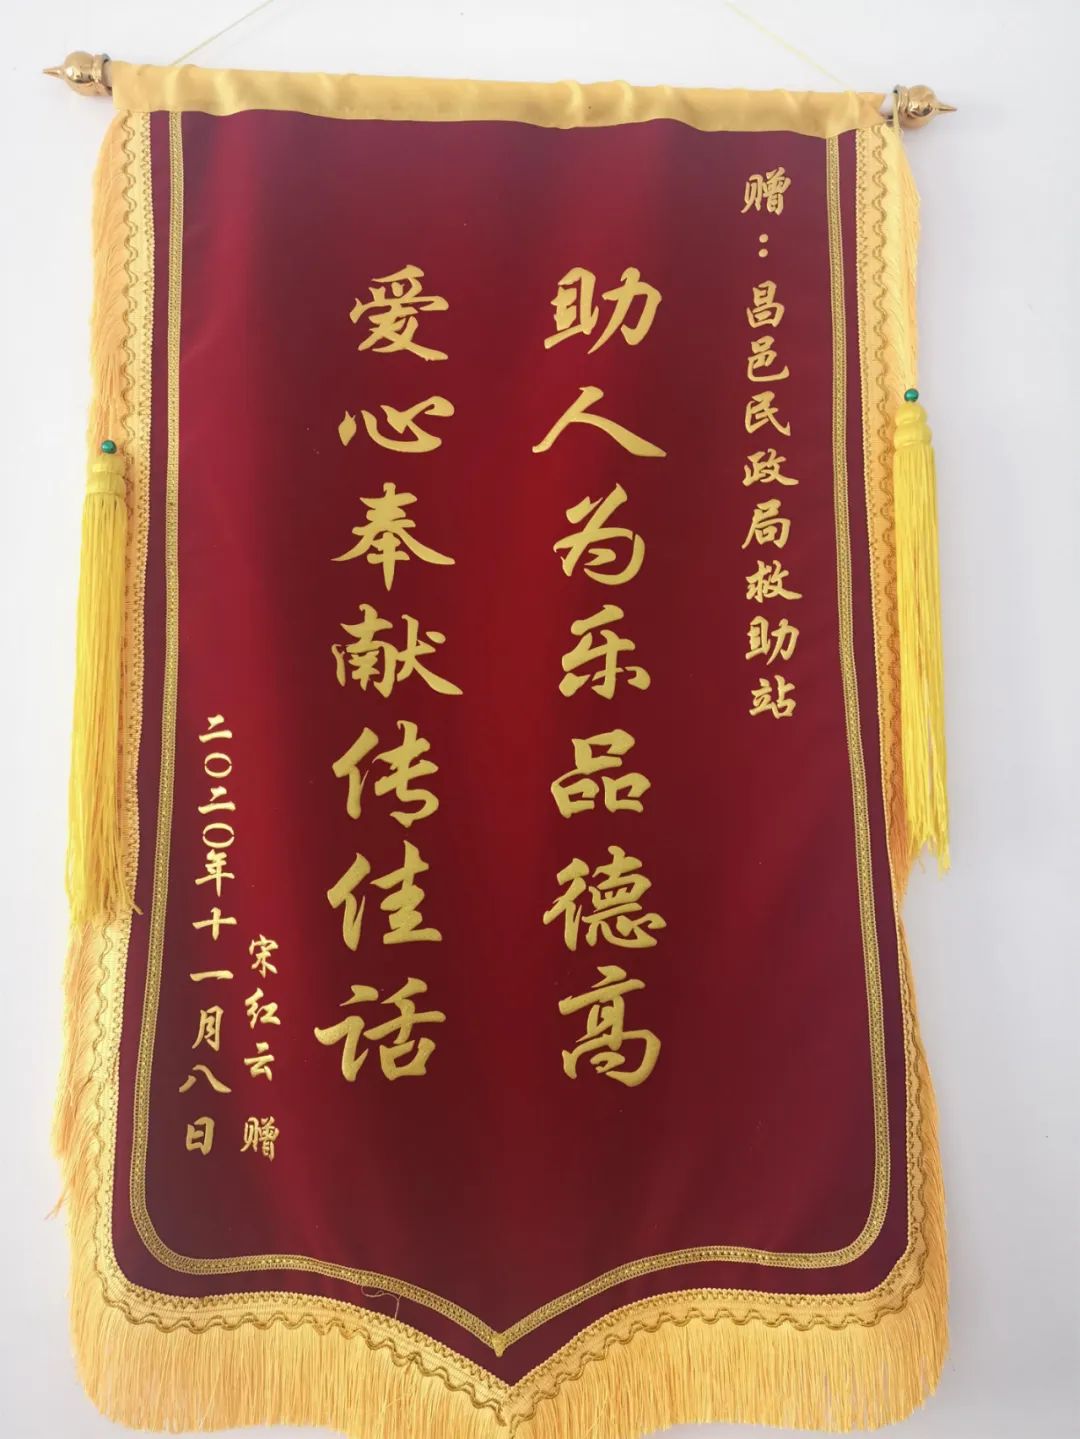 赠：昌邑民政局救助站
助人为乐品德高
爱心奉献传佳话
宋红云 赠
二〇二〇年十一月八日